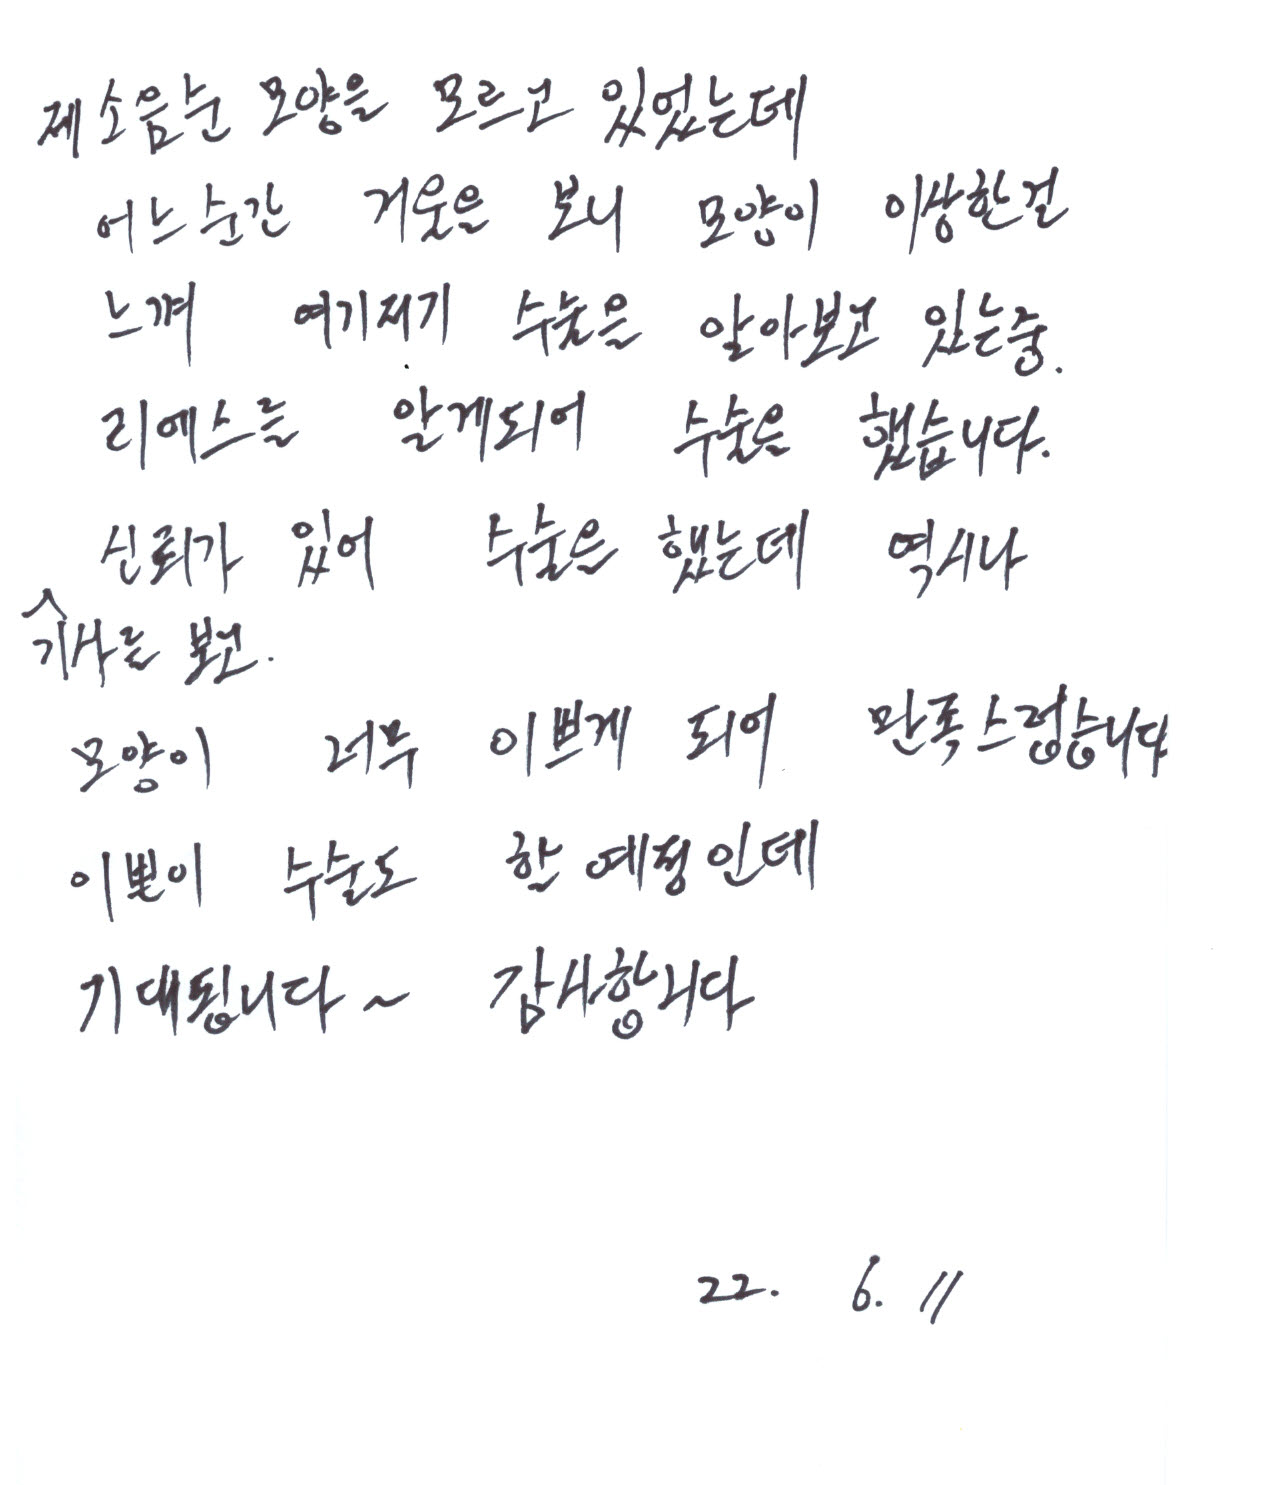 제 소음순 모양을 모르고 있었는데
어느순간 거울을 보니 모양이 이상한걸
느껴 여기저기 수술을 알아보고 있는중.
리에스를 알게되어 수술을 했습니다.
신뢰가 있어 수술을 했는데 역시나
^기사를 보고.
모양이 너무 이쁘게 되어 만족스럽습니다
이쁜이 수술도 할 예정인데
기대됩니다~ 감사합니다
22. 6. 11